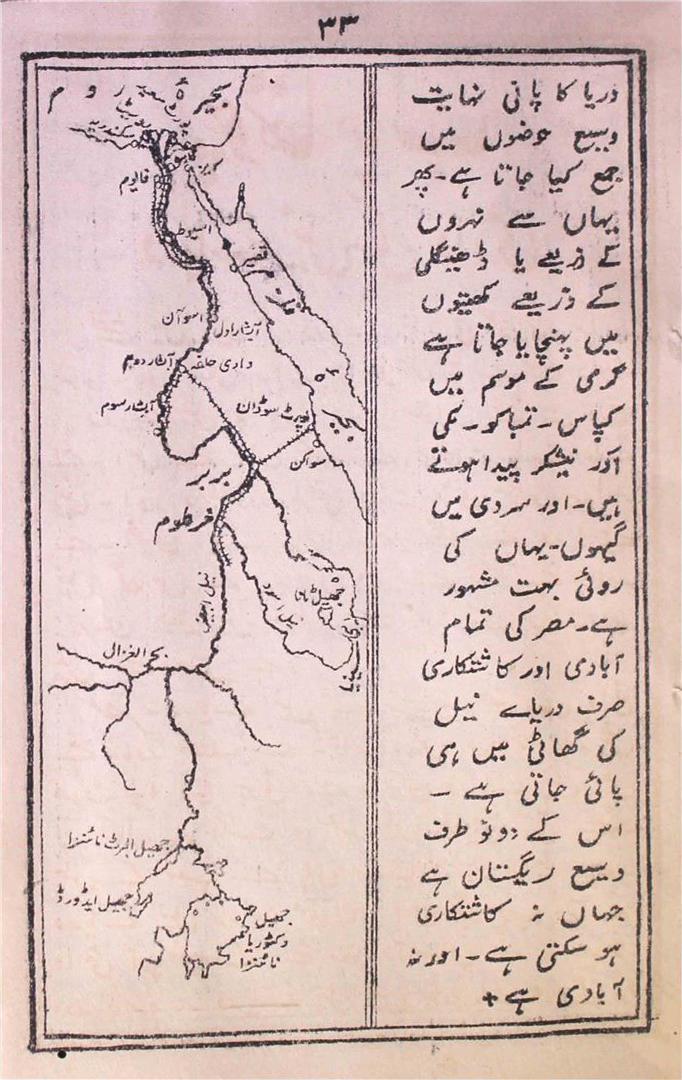 ۳۳
دریا کا پانی نہایت
وسیع حوضوں میں
جمع کیا جاتا ہے۔ پھر
یہاں سے نہروں
کے ذریعے یا ڈھینگلی
کے ذریعے کھیتوں
میں پہنچایا جاتا ہے
گرمی کے موسم میں
کپاس۔ تمباکو۔ مکی
اور نیشکر پیدا ہوتے
ہیں۔ اور سردی میں
گیہوں۔ یہاں کی
روئی بہت مشہور
ہے۔ مصر کی تمام
آبادی اور کاشتکاری
صرف دریاے نیل
کی گھاٹی میں ہی
پائی جاتی ہے۔
اس کے دونو طرف
وسیع ریگستان ہے
جہاں نہ کاشتکاری
ہو سکتی ہے۔ اور نہ
آبادی ہے +
بحیرۂ روم
پورٹ سعید
سکندریہ
فایوم
اسیوط
قصیر
بحیرۂ قلزم
اسوآن
آبشار اول
وادی حلفہ
آبشار دوم
آبشار سوم
پورٹ سوڈان
سواکن
بربر
خرطوم
نیل ابیض
نیل اسود
جھیل ٹانا
ابی سینیا
بحر الغزال
جھیل البرٹ نائنزا
جھیل ایڈورڈ
جھیل
وکٹوریا
نائنزا